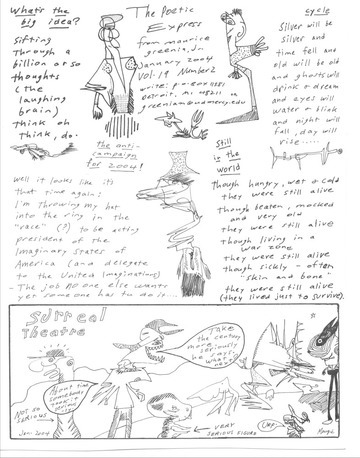 What's the
big idea?
Sifting
Through a
billion or so
thoughts
(The
laughing
brain)
Think oh
Think, do.
The Poetic
Express
from maurice
greenia, Jr.
January 2004
Vol. 19 Number 2
write: p.o. box
Detroit, mi. 48211 or
cycle
Silver will be
Silver and
time fell and
old will be old
and ghosts will
drink & dream
and eyes will
water & blink
and night will
fall, day will
rise.....
The anti-
campaign
for 2004!
well it looks like it's
that time again!
I'm throwing my hat
into the ring in the
"race" (?) to be acting
president of the
Imaginary States of
America (and delegate
to the United Imaginations)
- The job no one else wants
yet someone has to do is....
Still
is the
world
Though hungry, wet & cold
they were still alive
Though beaten, mocked
and very old
they were still alive
Though living in a
war zone
they were still alive
though sickly - often
"skin and bone"
they were still alive
(they lived just to survive).
Surreal
Theatre
About time
somebody
took it
Take
the century
more
seriously
he says,
what's
next?
NOT SO
SERIOUS
Jan. 2004
VERY
SERIOUS FIGURE